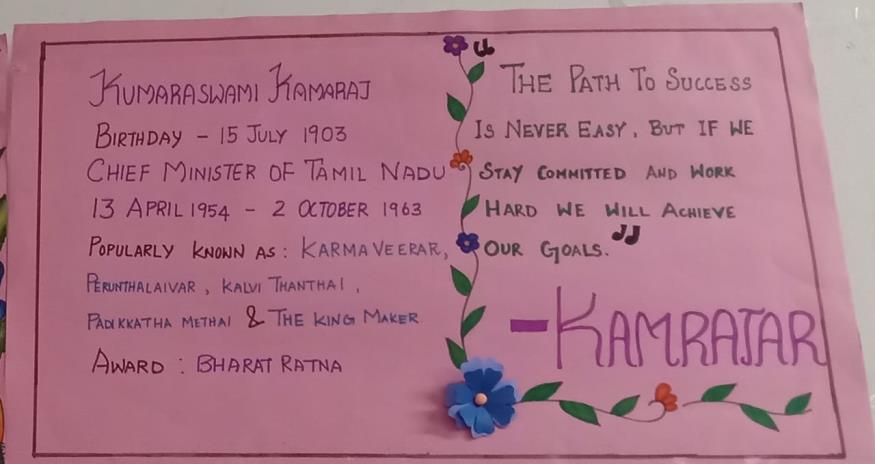 KUMARASWAMI KAMARAJ
BIRTHDAY - 15 JULY 1903
CHIEF MINISTER OF TAMIL NADU
13 APRIL 1954 - 2 OCTOBER 1963
POPULARLY KNOWN AS : KARMAVEERAR,
PERUNTHALAIVAR, KALVI THANTHAI,
PADIKKATHA METHAI & THE KING MAKER
AWARD : BHARAT RATNA
“THE PATH TO SUCCESS
IS NEVER EASY, BUT IF WE
STAY COMMITTED AND WORK
HARD WE WILL ACHIEVE
OUR GOALS.”
-KAMRAJAR